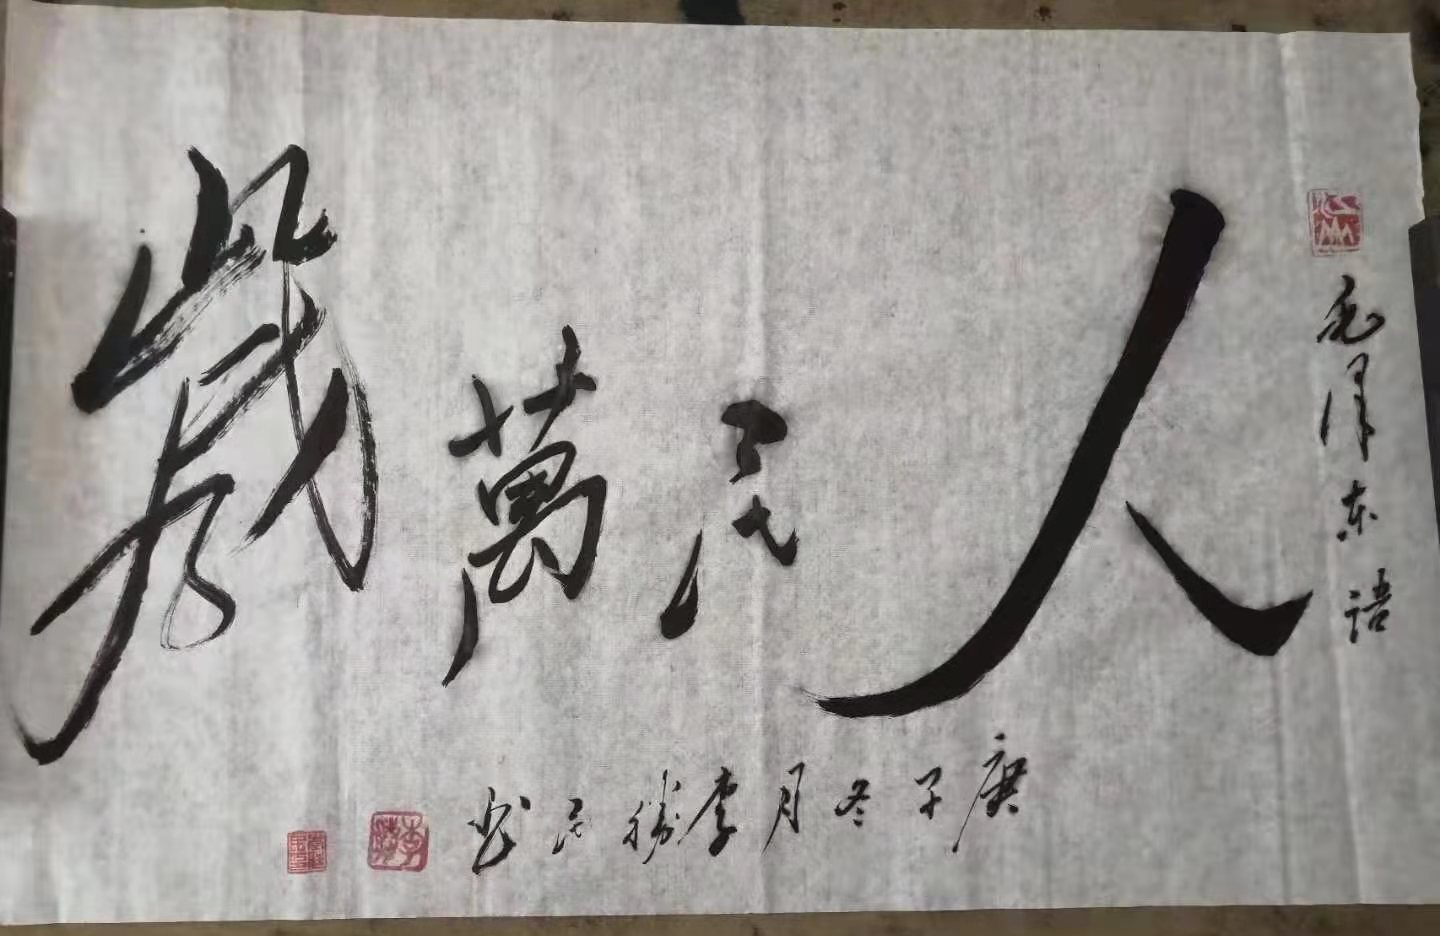 人民萬歲
毛泽东语
庚子冬月李勝民书